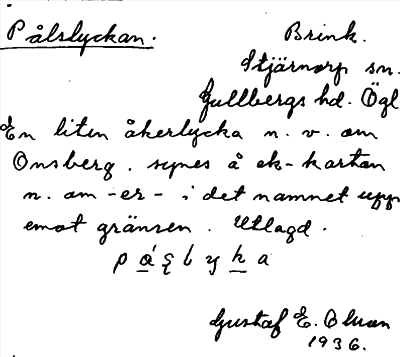 Pålslyckan.
Brink.
Stjärnorp sn.
Gullbergs hd. Ögl
En liten åkerlycka n. v. om
Onsberg. synes å ek-kartan
n. om -er- i det namnet upp
emot gränsen. Utlagd.
Gustaf E. Olsson
1936.